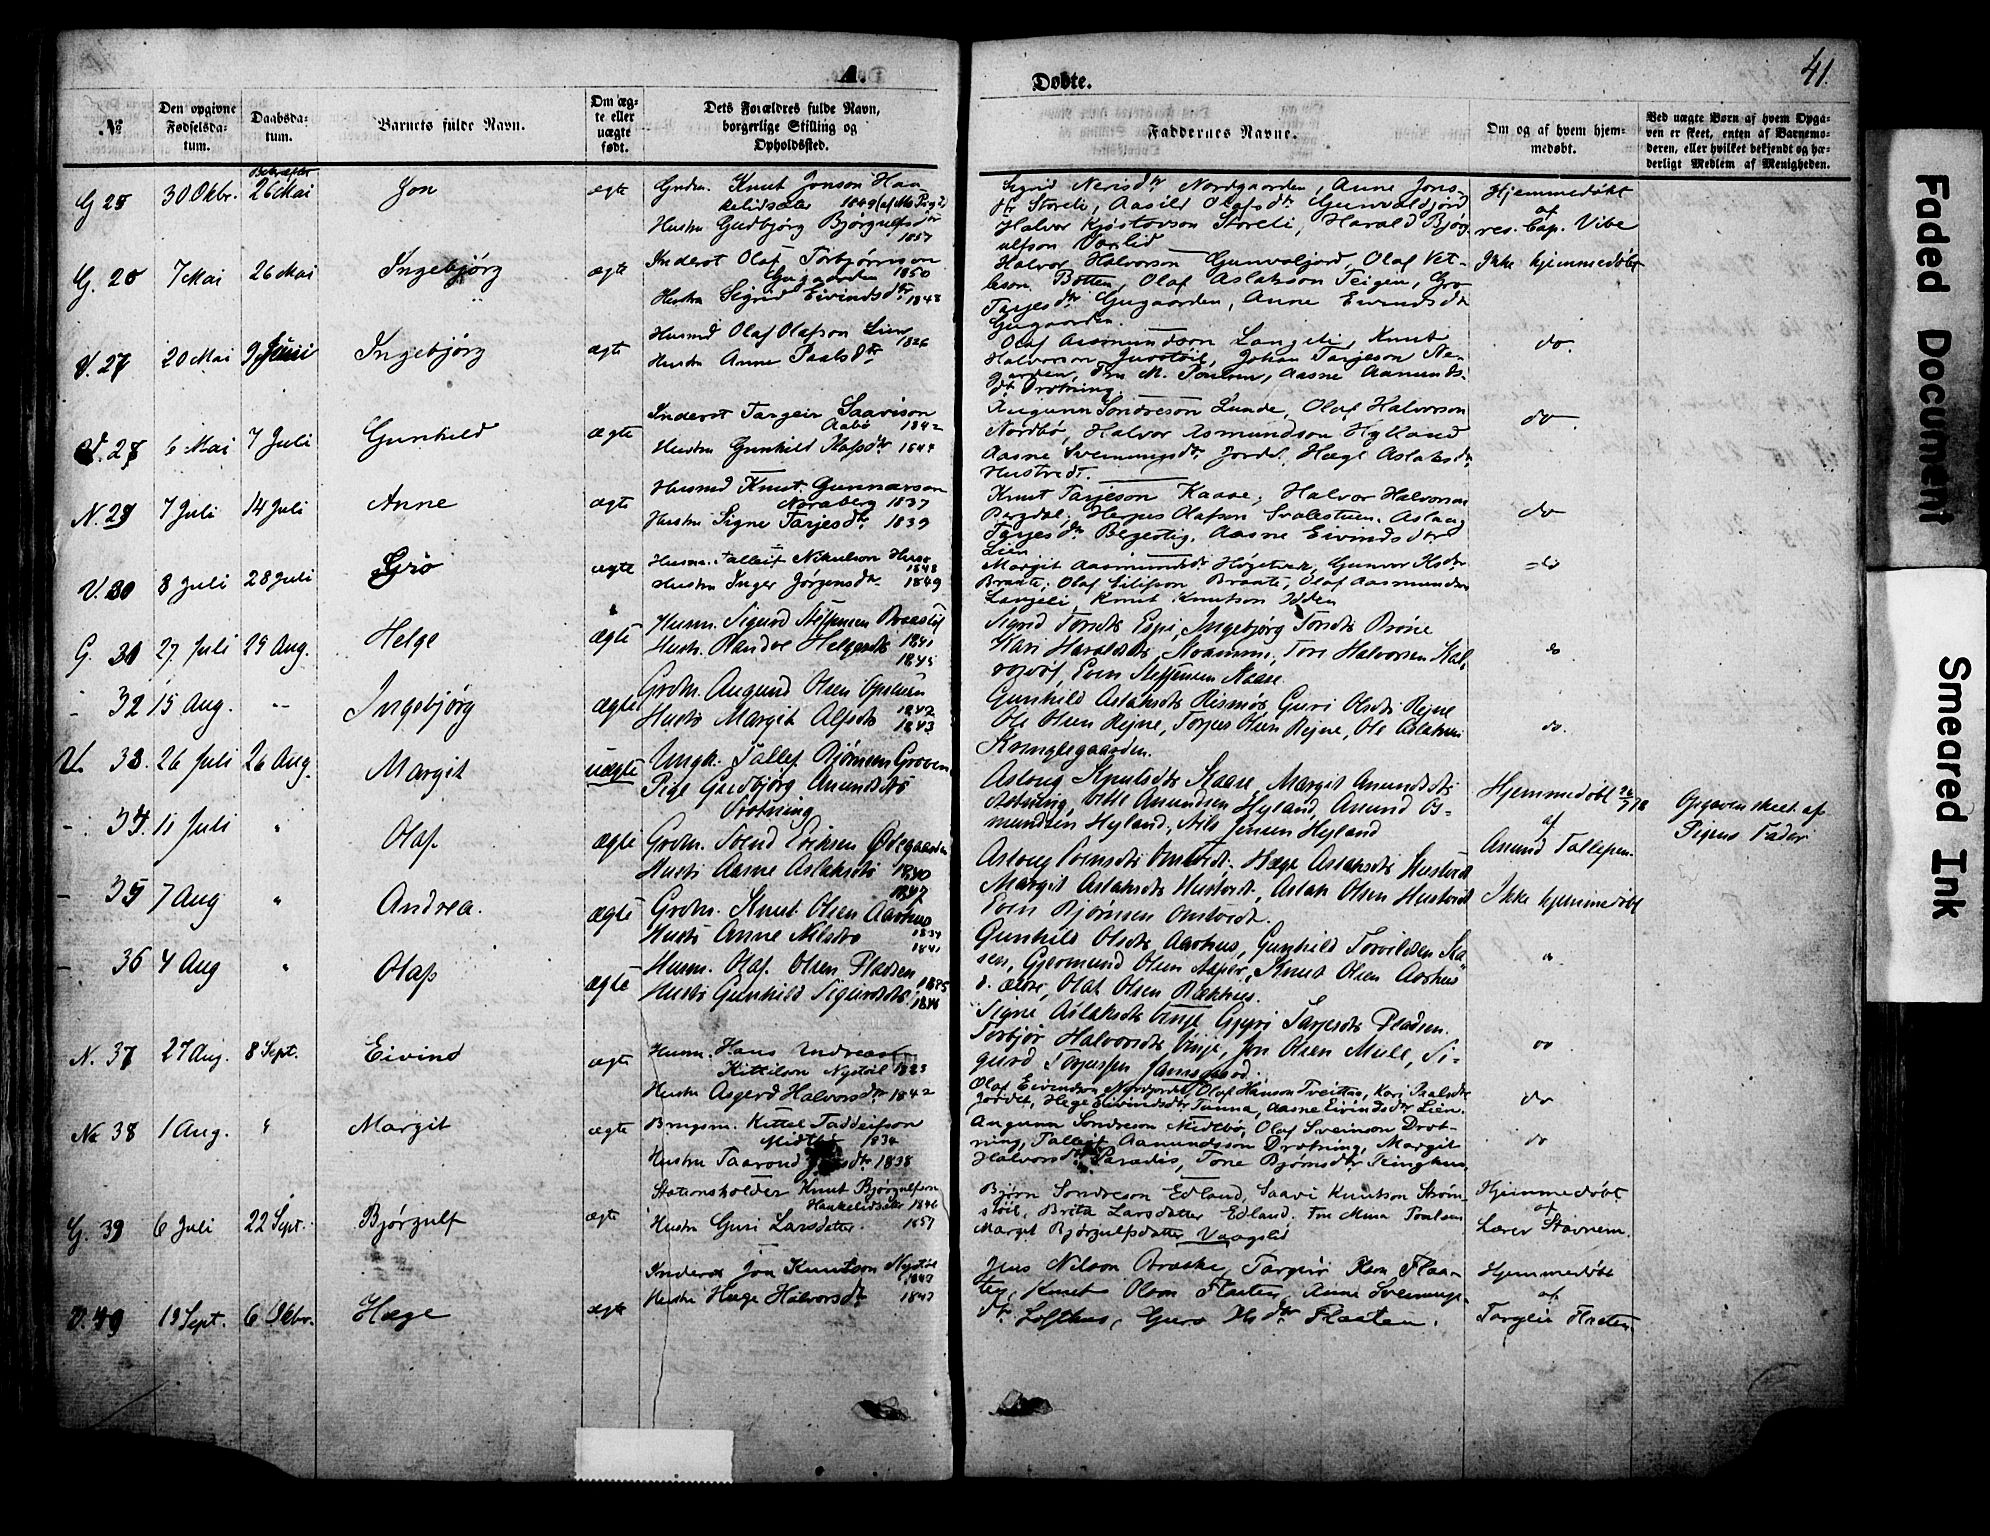 41.
A.
Døbte.
No
Den opgivne Fødselsdatum.
Daabsdatum.
Barnets fulde Navn.
Om ægte eller uægte født.
Dets Forældres fulde Navn, borgerlige Stilling og Opholdssted.
Faddernes Navne.
Om og af hvem hjemmedøbt.
Ved uægte Børn af hvem Opgaven er skeet, enten af Barnemoderen, eller hvilket bekjendt og hæderligt Medlem af Menigheden.
G 25 30 Oktbr. 26 Mai Jon ægte
Knut Jonson Haukelidsæter 1849
Hustru Gudbjørg Bjørgulfsdtr 1857
Sigrid Nerisdtr Nordgaarden, Anne Jonsdtr Storeli, Aasild Olafsdtr Gunvaldjord
Halvor Kjøstovson Storeli, Harald Bjørgulfson Vaslid
Hjemmedøbt af res. Cap. Vibe
G. 26 7 Mai 26 Mai Ingebjørg ægte
Inderst Olaf Torbjørnson Gugaarden 1850
Hustru Sigrid Eivindsdtr 1843
Halvor Halvorson Gunvaljord, Olaf Vetleson Botten, Olaf Aslakson Teigen, Gro Tarjesdtr Gugaarden, Anne Eivindsdtr Gugaarden.
Ikke hjemmedøbt
V. 27 20 Mai 9 Juni Ingebjørg ægte
Husmd Olaf Olafson Lien 1826
Hustru Anne Paalsdtr
Olaf Aasmundson Langeli, Knut Halvorson, Johan Tarjeson Negarden, M. Poulsen, Aasne Aamundsdtr Drotning
do.
28 6 Mai 7 Juli Gunhild ægte
Inderst Targeir Saavison Aabø 1842
Hustru Gunhild Olafsdtr
Augunn Sondreson Lunde, Olaf Halvorson Nordbø, Halvor Asmundson Hylland
Aasne Sveinungsdtr Jordet, Hæge Aslaksdtr Hustvedt.
do.
N. 29 7 Juli 14 Juli Anne ægte
Husmd Knut Gunnarson Noraberg 1837
Hustru Signe Tarjesdtr 1839
Knut Tarjeson Kaase, Halvor Halvorson Bergdal, Herjus Olafson Svalestuen, Aslaug Tarjesdtr Bergestig, Aasne Eivindsdtr Lien
do
V. 30 8 Juli 28 Juli Gro ægte
Husm. Talleif Nikulson 1848
Hustru Inger Jørgensdtr 1849
Margit Aasmundsdtr, Gunvor Braate, Olaf Eilifson Braate, Olaf Aasmundson Langeli, Knut Knutson
do
G. 31 27 Juli 25 Aug. Helge ægte
Husm. Sigurd Steffensen 1841
Hustr. Randve Helgesdtr 1845
Sigrid Torsdtr Espi, Ingebjørg Torsdtr
Kari Haraldsdtr, Tore Halvorsen, Even Steffensen Kaase
do
- 32 15 Aug. -- Ingebjørg ægte
Grdm. Augund Olsen 1842
Hustr. Margit Alfsdtr 1843
Gunhild Aslaksdtr Rismoe, Guri Olsdtr Rejne
Ole Olsen Rejne, Torjus Olsen Rejne, Ole Aslaksen Kringlegaarden.
do.
V. 33. 26 Juli 26 Aug. Margit uægte
Ungk. Tallef Bjørnsen Groven
Pige Gudbjørg Anundsdtr Drotning
Aslaug Knutsdtr Kaase, Margit Anundsdtr Drotning, Anundsen Hyland, Anund Osmundsen Hyland, Nils Jensen Hyland
Hjemmedøbt af Anund Tallefsen.
Opgaven skeet af Pigens Fader
- 34. 11 Juli " Olaf ægte
Grdm. Svend Eriksen Ødegaarden
Hustr. Aasne Aslaksdtr 1840 1847
Aslaug Svensdtr, Hæge Aslaksdtr Hustvedt
Margit Aslaksdtr Hustvedt, Aslak Olsen Hustvedt
Even Bjørnsen
Ikke hjemmedøbt
- 35 7 Aug " Andrea. ægte
Grdm. Knut Olsen Aarhus 1834
Hustr. Anne Nilsdtr 1841
Gunhild Olsdtr Aarhus, Gunhild, Gjermund Olsen, Knut Olsen Aarhus d. ældre, Olaf Olsen Bækhus.
"
- 36 4 Aug " Olaf ægte
Husm. Olaf Olsen Pladsen 1845
Hustr. Gunhild Sigurdsdtr 1846
Signe Aslaksdtr Vinje, Tarjesdtr Pladsen.
Torbjør Halvorsdtr Vinje, Jon Olsen Mule, Sigurd Torjussen
N. 37 27 Aug. 8 Sept. Eivind ægte
Husm. Hans Andreas Kittilson Nystøil 1823
Hustru Asgerd Halvorsdtr 1842
Olaf Eivindson, Olaf Hanson Tveitten, Kari Paalsdtr Jordet, Hege Eivindsdtr Tunna, Aasne Eivindsdtr Lien.
do
N. 38 1 Aug. " Margit ægte
Brugsm. Kittel Taddeifson Midtbø 1834
Hustru Taarond 1838
Augunn Sondreson Midtbø, Olaf Sveinson Drotning, Talleif Aamundsson Drotning, Margit Halvorsdtr Paradis, Tone Bjørnsdtr Ringhus.
do
G. 39 6 Juli 22 Sept. Bjørgulf ægte
Stationsholder Knut Bjørgulfson Haukelidsæter 1846
Hustru Guri Larsdatter 1851
Bjørn Sondreson Edland, Saavi Knutson Strømstøil, Brita Larsdatter Edland, Poulsen
Margit Bjørgulfsdatter Vaagslid
Hjemmedøbt af Lærer Stavnem.
V. 40 19 Sept. 6 Oktbr. Hæge ægte
Inderst Jon Knutson Nystøl 1847
Hustru Hæge Halvorsdtr 1847
Jens Nilson, Targeir, Knut Olson Flaaten, Anne Sveinungsdtr Lofthus, Guro Flaaten.
Hjemmedøbt af Targeir Flaaten.
Faded Document
Smeared Ink